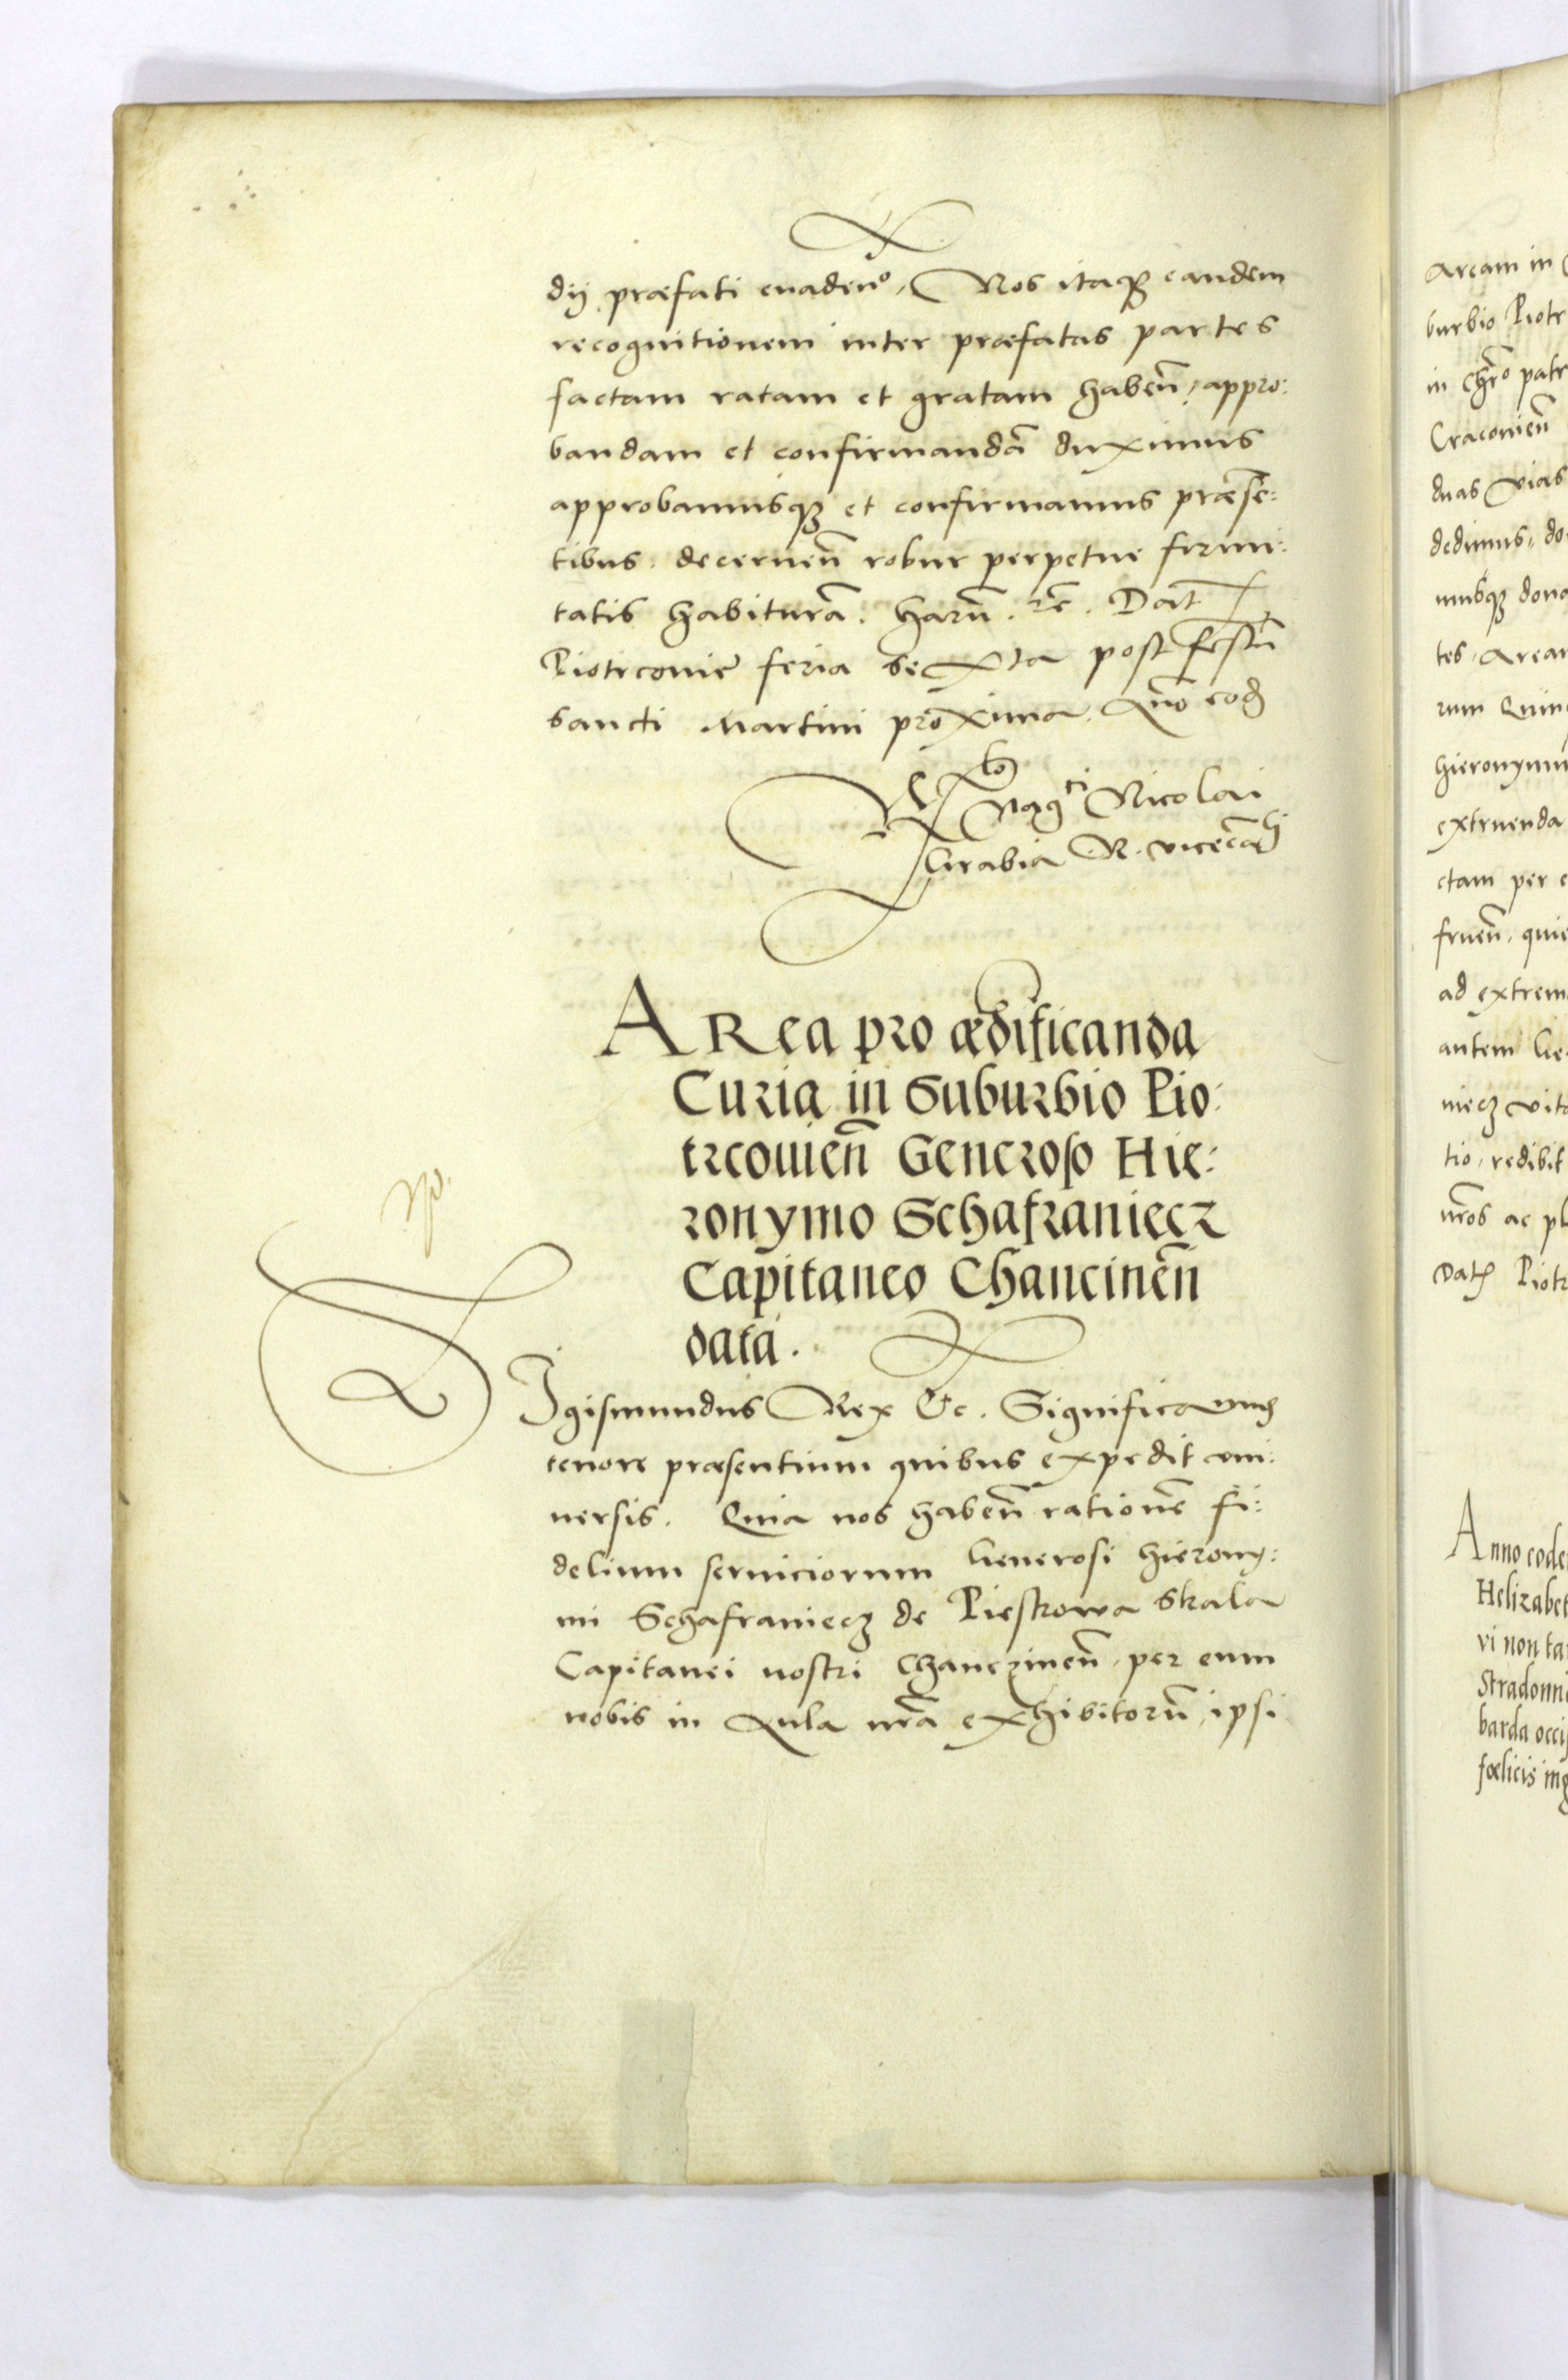 dij præfati euadenᵒ. Nos itaqꝫ eandem
recognitionem inter præfatas partes
factam ratam et gratam habeñ, appro:
bandam et confirmandā duximus
approbamusqꝫ et confirmamus præsē:
tibus. decerneñ robur perpetue firmi:
tatis habiturā. harū. rē. Dat
Piotrconie feria sexta post festū
sancti Martini proxima. Año eod
Magᶜⁱ Nicolai
Grabia R. vicecā
ARea pro ædificanda
Curia in Suburbio Pio:
trcouień Generoso Hie:
ronymo Schafraniecz
Capitaneo Chancinēn
data.
Sigismundus Rex &c. Significamus
tenore præsentium quibus expedit vni:
uersis. Quia nos habeñ rationē fi:
delium seruiciorum Generosi Hierony:
mi Schafraniecz de Pieskowa Skala
Capitanei nostri Chancзineñ per eum
nobis in Aula nrā exhibitorū, ipsi
Aream in
burbio Piotr
in Chrō patr
Cracouieñ
duas vias
dedimus, do
musqꝫ dona
tes. Arean
rum Quin
Hieronymu
extruenda
ctam per e
frueñ, quie
ad extrem
autem
niecz vita
tio, redibit
nrōs ac pl
Dat Piotr
Anno code
Helizabet
vi non ta
Stradomi
barda occi
fœlicis